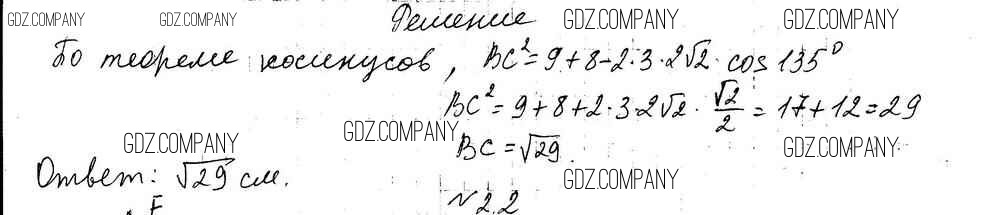 GDZ.COMPANY GDZ.COMPANY Решение GDZ.COMPANY GDZ.COMPANY
По теореме косинусов, BC² = 9 + 8 - 2·3·2√2· cos 135°
GDZ.COMPANY GDZ.COMPANY
BC² = 9 + 8 + 2·3·2√2 · √2/2 = 17 + 12 = 29
GDZ.COMPANY GDZ.COMPANY BC = √29 GDZ.COMPANY
Ответ: √29 см. GDZ.COMPANY
F N 2.2